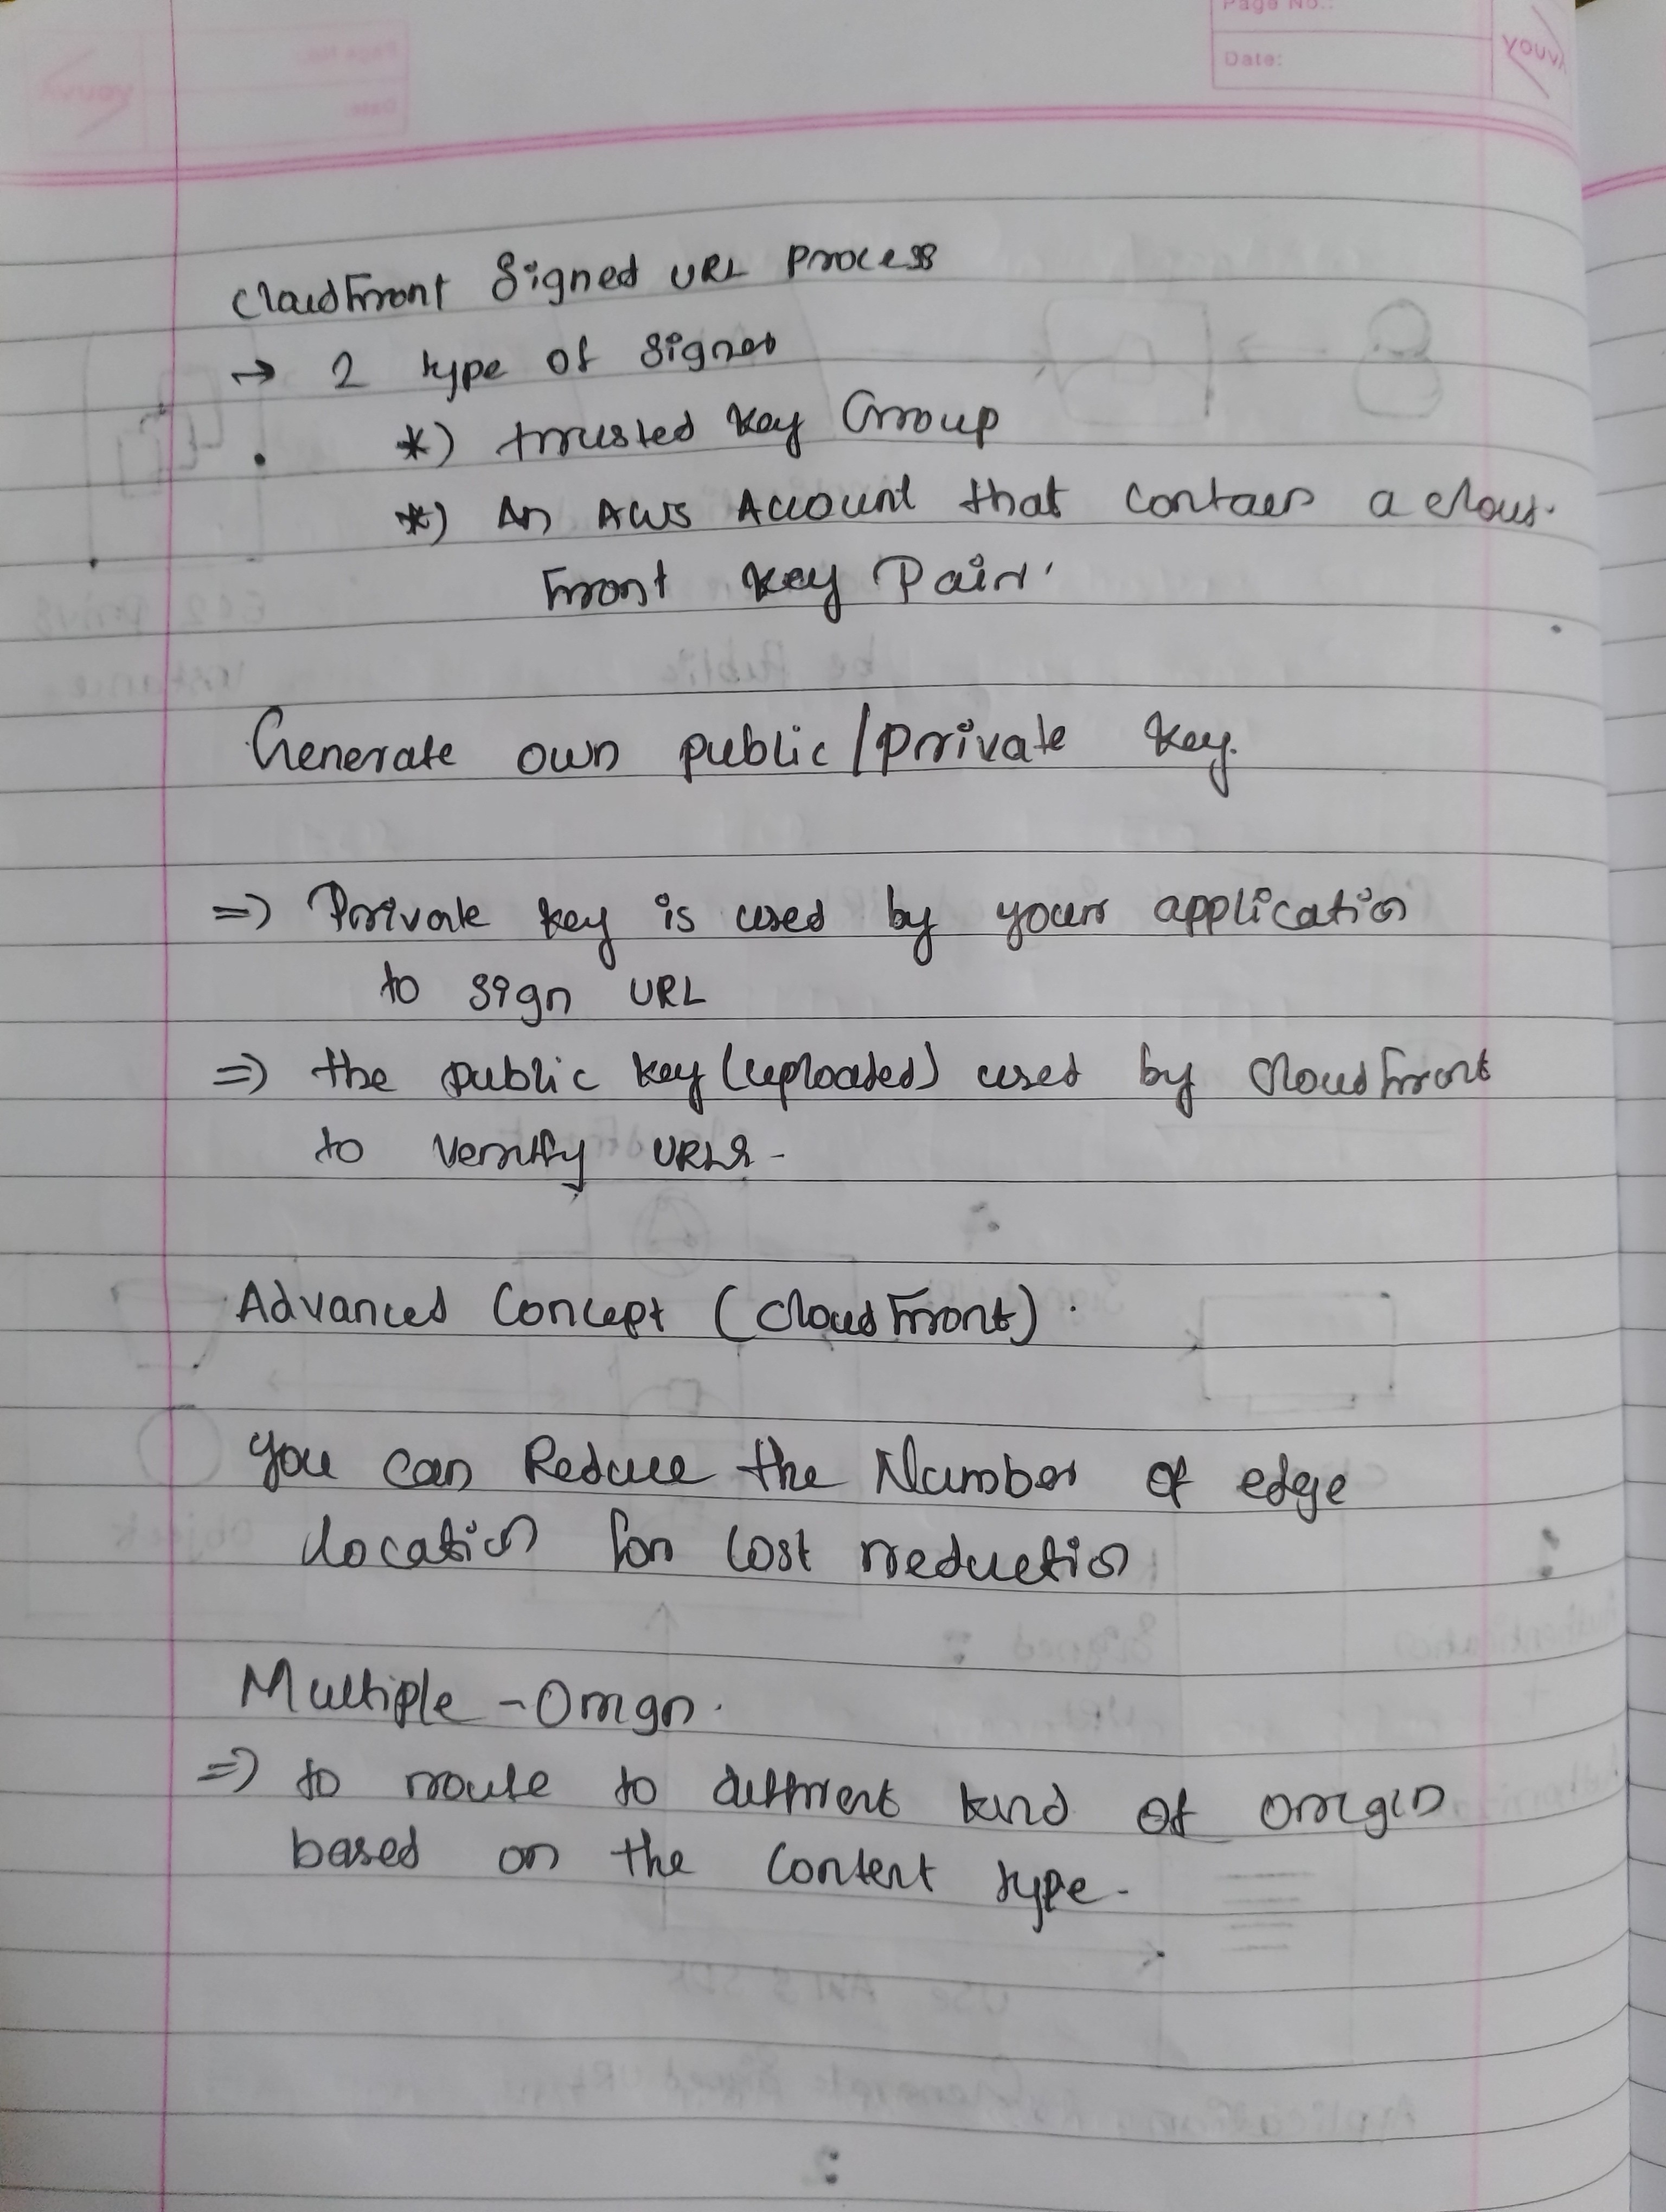 Page No.:
Date:
youva
CloudFront Signed URL Process
→ 2 type of signer
*) trusted key Group
*) An AWS Account that contaes a clou.
Front key Pair.
Generate own public/private key.
=> Private key is used by your application
to sign URL
=> the public key (uploaded) used by CloudFront
to verify URLs.
Advanced Concept (CloudFront).
you can Reduce the Number of edge
location for cost reduction
Multiple - Orign.
=> to route to diffrent kind of origin
based on the content type.